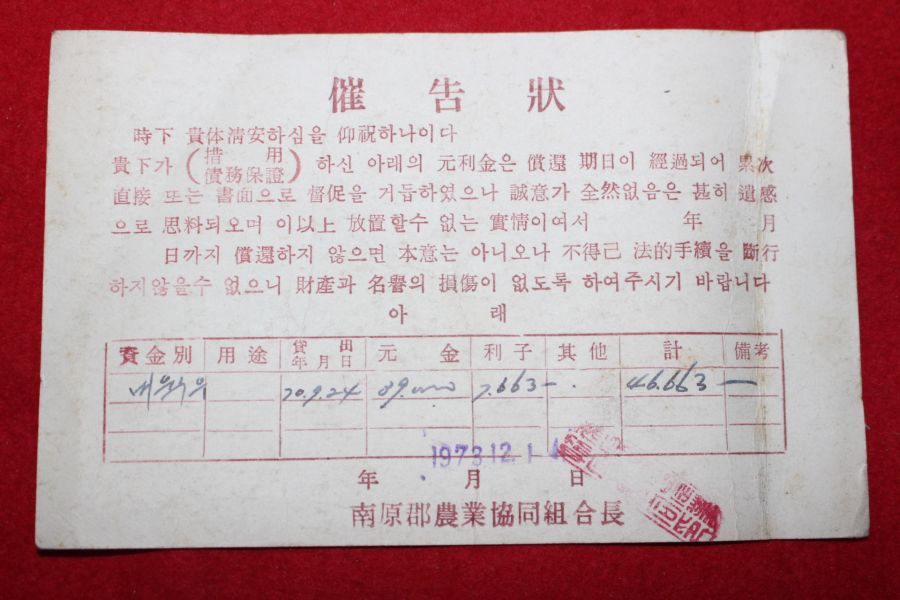 催告狀
時下 貴体淸安하심을 仰祝하나이다
貴下가 (措用 債務保證) 하신 아래의 元利金은 償還 期日이 經過되어 累次
直接 또는 書面으로 督促을 거듭하였으나 誠意가 全然없음은 甚히 遺感
으로 思料되오며 이以上 放置할수 없는 實情이여서 年 月
日까지 償還하지 않으면 本意는 아니오나 不得己 法的手續을 斷行
하지않을수 없으니 財產과 名譽의 損傷이 없도록 하여주시기 바랍니다
아 래
資金別 用途 貸出年月日 元金 利子 其他 計 備考
70.9.24 39.000 7.663- 46.663-
1973 12.1
年 月 日
南原郡農業協同組合長